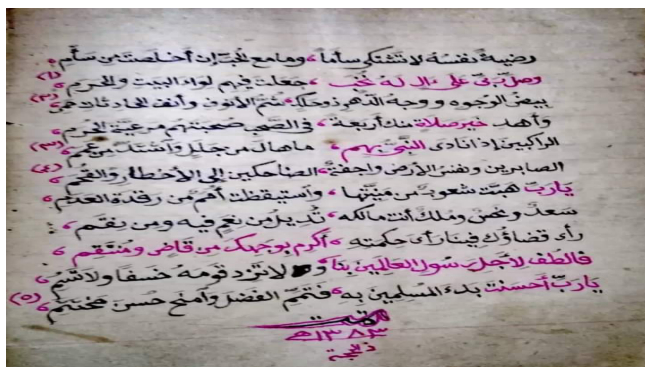 رضية نفسه لا تشتكي سأما ، وما مع الحب إن أخلصت من سأم
وصل ربي على آل له نخب ، جعلت فيهم لواء البيت والحرم (٢)
بيض الوجوه ووجه الدهر ذو حلك ، شم الأنوف وأنف الحادثات حمي (٣)
وأهد خير صلاة منك أربعة ، في الصحب صحبتهم مرعية الحرم
الراكبين إذا نادى النبي بهم ، ما هال من جلل واشتد من عمم (٣)
الصابرين ونفس الأرض واجفة ، الضاحكين إلى الأخطار والقحم (٤)
يا رب هبت شعوب من منيتها ، واستيقظت أمم من رقدة العدم
سعد ونحس وملك أنت مالكه ، تديل من نعم فيه ومن نقم
رأى قضاؤك فينا رأي حكمته ، أكرم بوجهك من قاض ومنتقم
فالطف لأجل رسول العالمين بنا ، ولا تزد قومه خسفا ولا تسم
يا رب أحسنت بدء المسلمين به ، فتمم الفضل وامنح حسن مختتم (٥)
تمت
١٣٨٣ هـ